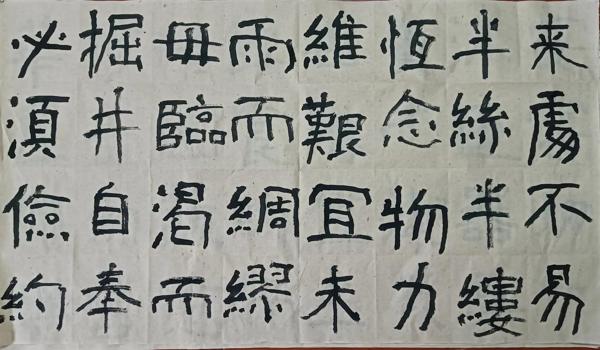 来處不易
半絲半縷
恆念物力
維艱宜未
雨而綢繆
毋臨渴而
掘井自奉
必須儉約